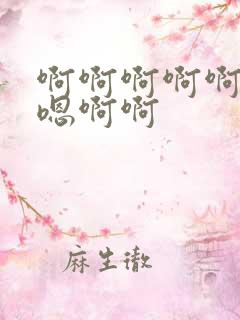 啊啊啊啊啊
嗯啊啊
麻生徹